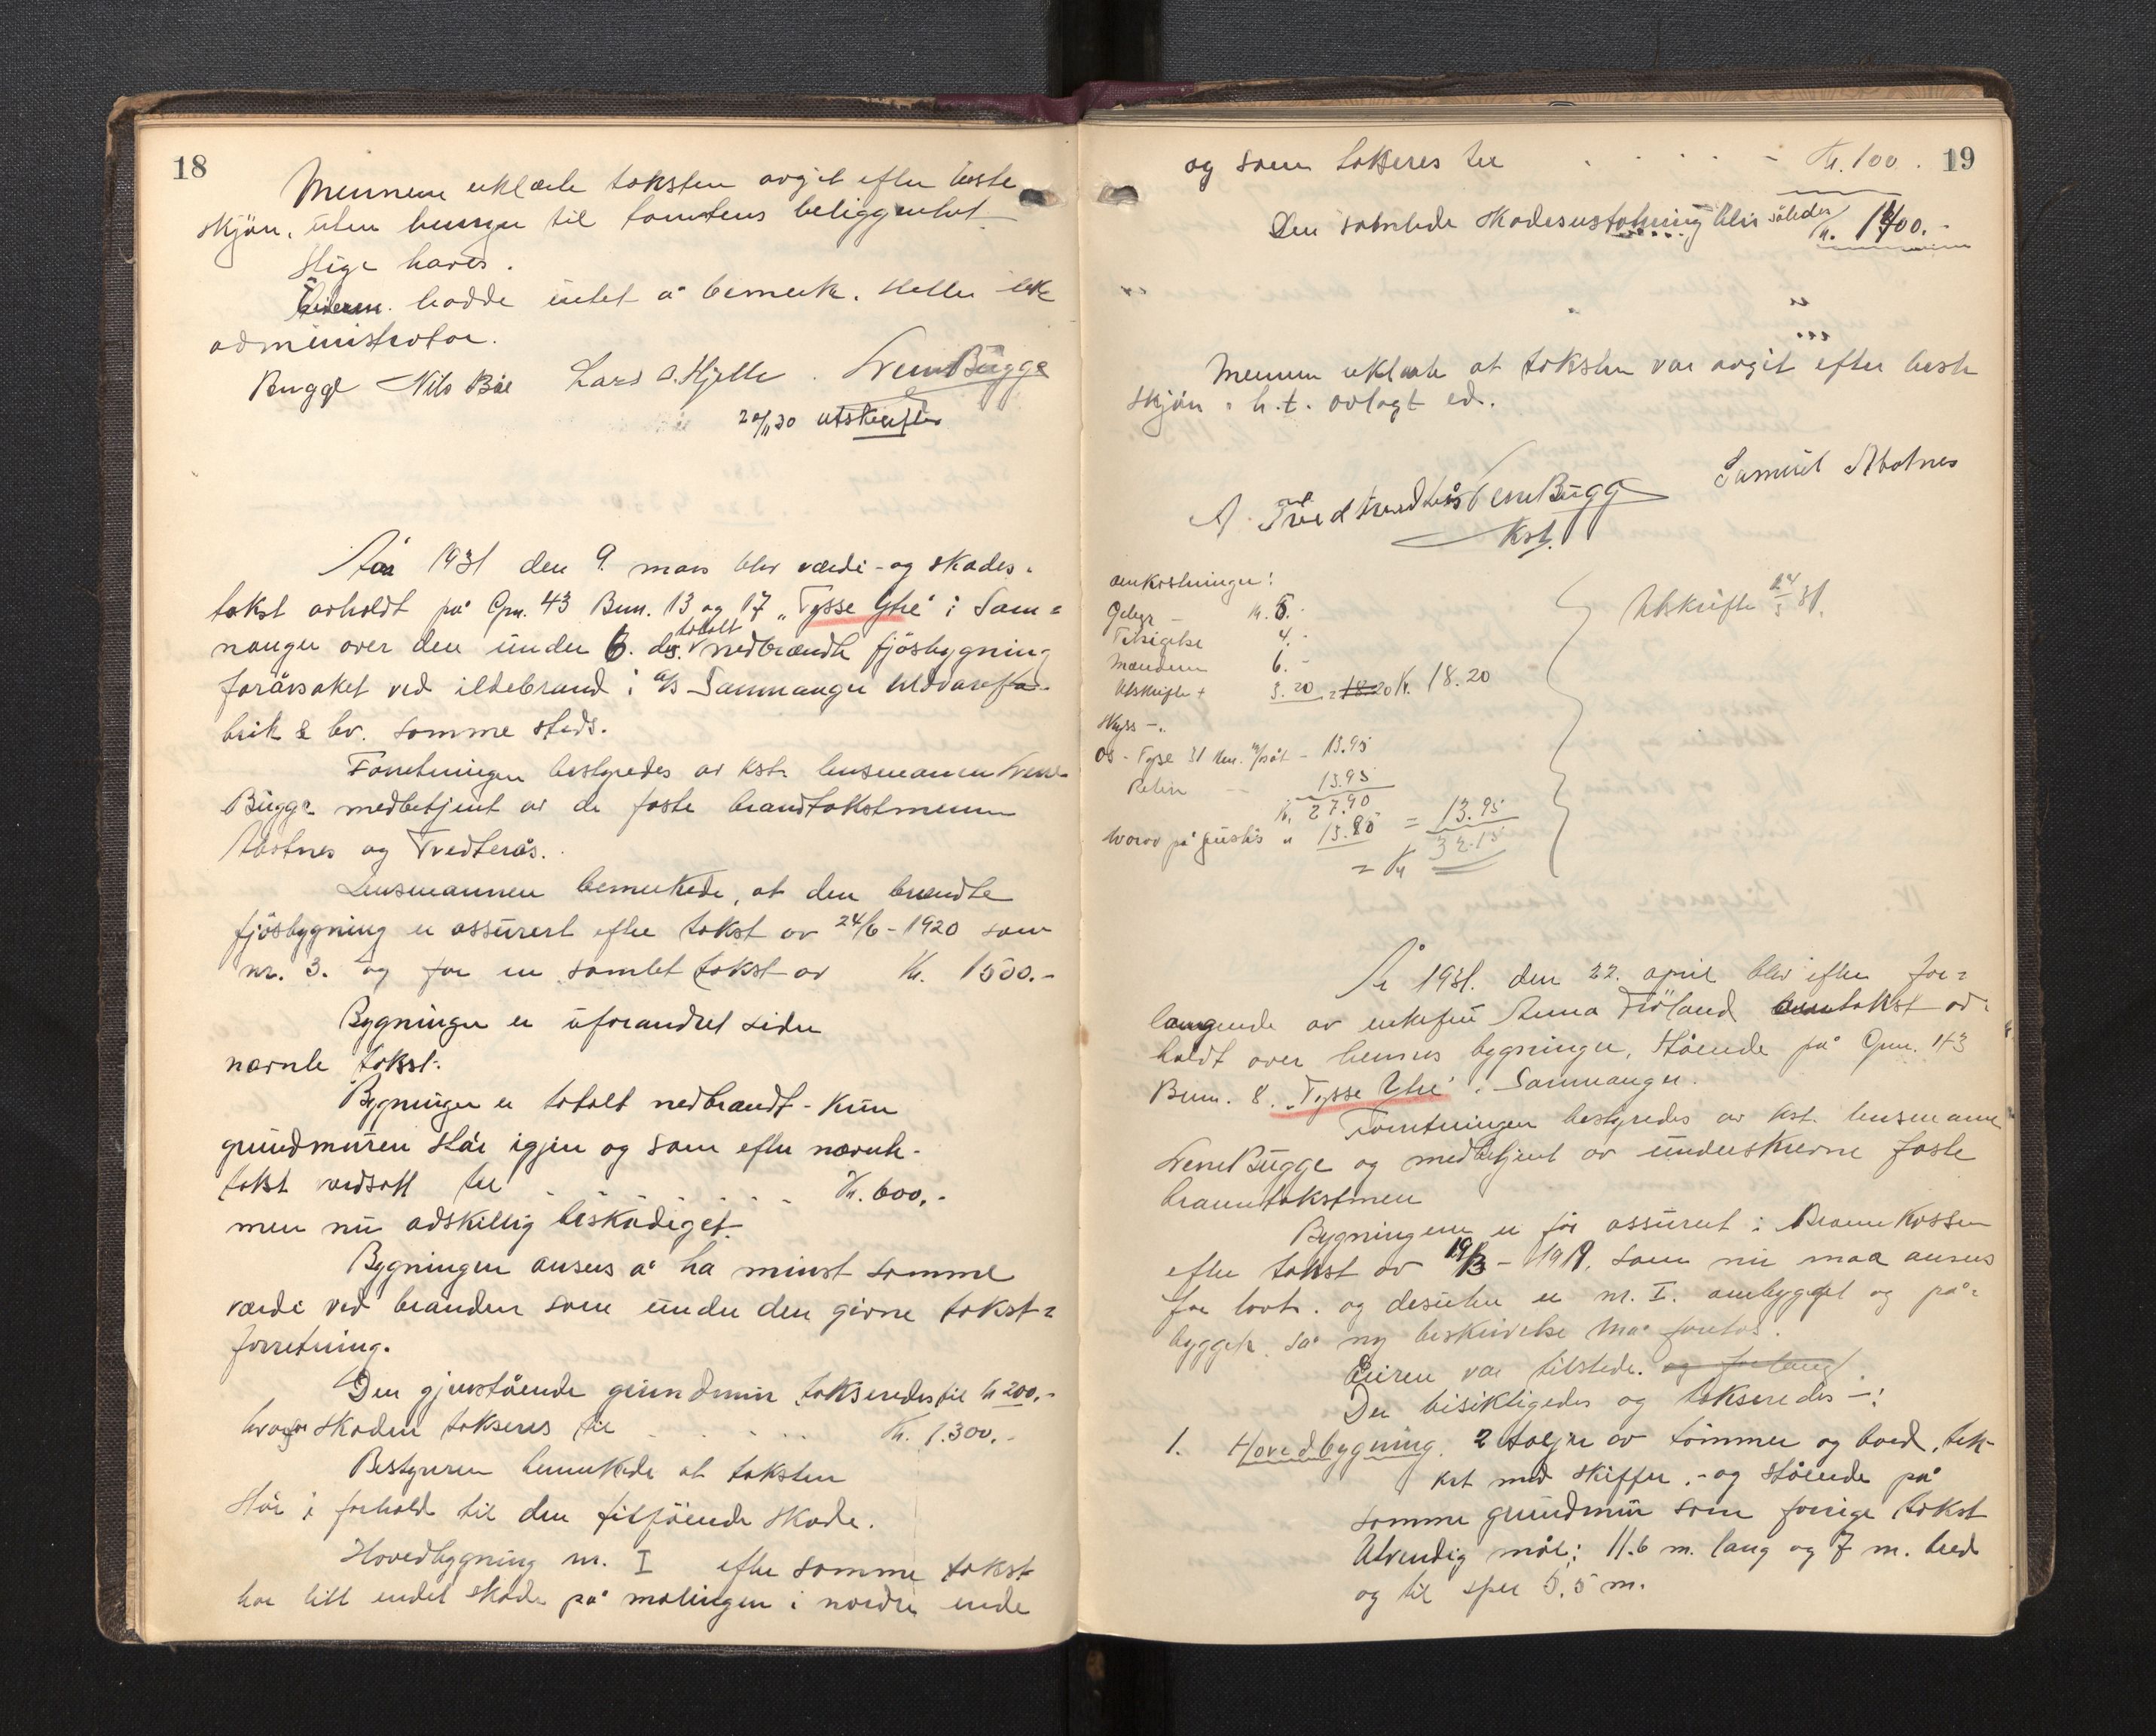 18
Mennene erklærte taksten avgit efter beste
skjön, uten hensyn til tomtens beliggenhet
Eieren hadde intet å bemerke. Heller ikke
administrator.
Bugge Nils Bøe Lars O. Hjelle. Sven Bugge
20/11 30 utskrifter
Aar 1931 den 9. mars blev værdi- og skades-
takst avholdt på Gnr. 43 Bnr. 13 og 17 "Tysse Ytre" i Sam=
nanger over den under 6. ds. totalt nedbrændte fjösbygning
forårsaket ved ildebrand i A/S Samnanger Uldvarefa-
brik & bv. samme steds.
Forretningen bestyredes av kst. lensmannen Svenn
Bugge medbetjent av de faste brandtakstmenn
Abotnes og Tvedterås.
Lensmannen bemerkede, at den brændte
fjösbygning er assurert efter takst av 24/6-1920 som
nr. 3. og for en samlet takst av Kr. 1500.-
Bygningen er uforandret siden
nævnte takst.
Bygningen er totalt nedbrændt - kun
grundmuren står igjen og som efter nævnte
takst verdsatt til . . . . . Kr. 600,-
men nu adskillig beskadiget.
Bygningen anses å ha minst samme
værdi ved branden som under den givne takst=
forretning.
Den gjenstående grundmur takseredes til kr 200,-
hvorfor skaden takseres til . . . . Kr. 1.300,-
Bestyreren bemerkede at taksten
står i forhold til den tilföiende skade.
Hovedbygning nr. I efter samme takst
har litt endel skade på malingen i nordre ende
19
og som takseres til . . . . - Kr. 100.
Den samlede skadeserstatning blir således
Kr. 1400.-
Mennene erklærte at taksten var avgit efter beste
skjön i h.t. avlagt ed.
A. Tvedterås Sven Bugge Samuel Abotnes
Kst.
omkostninger:
Gebyr - kr. 5.-
Tilsigelse 4.-
Mændene 6.-
Utskrifter + 3.20 = 18.20 Kr. 18.20
Utskrifter 24/3 31.
Skyss -.
Os - Tysse 31 km. - 13.95
Retur - 13.95
Kr. 27.90
hvorav på justis " 13.95 = 13.95
= Kr 32.15
År 1931. den 22. april blev efter for=
langende av enkefru Anna Tröland branntakst av-
holdt over hennes bygninger, stående på Gnr. 43
Bnr. 8. "Tysse Ytre" i Samnanger.
Forretningen bestyredes av kst. lensmann
Sven Bugge og medbetjent av underskrevne faste
branntakstmen
Bygningene er för assurert i Brannkassen
efter takst av 19/3-1919. som nu maa anses
for lavt. og desuten er nr. I. ombygget og på=
bygget, så ny beskrivelse må foretas.
Eieren var tilstede. og forlang
Der besiktigedes og takseredes -:
1. Hovedbygning. 2 etasjer av tömmer og bord, tek-
ket med skiffer. - og stående på
samme grundmur som forrige takst
Utvendig mål: 11.6 m. lang og 7 m. bred
og til sper 5,5 m.